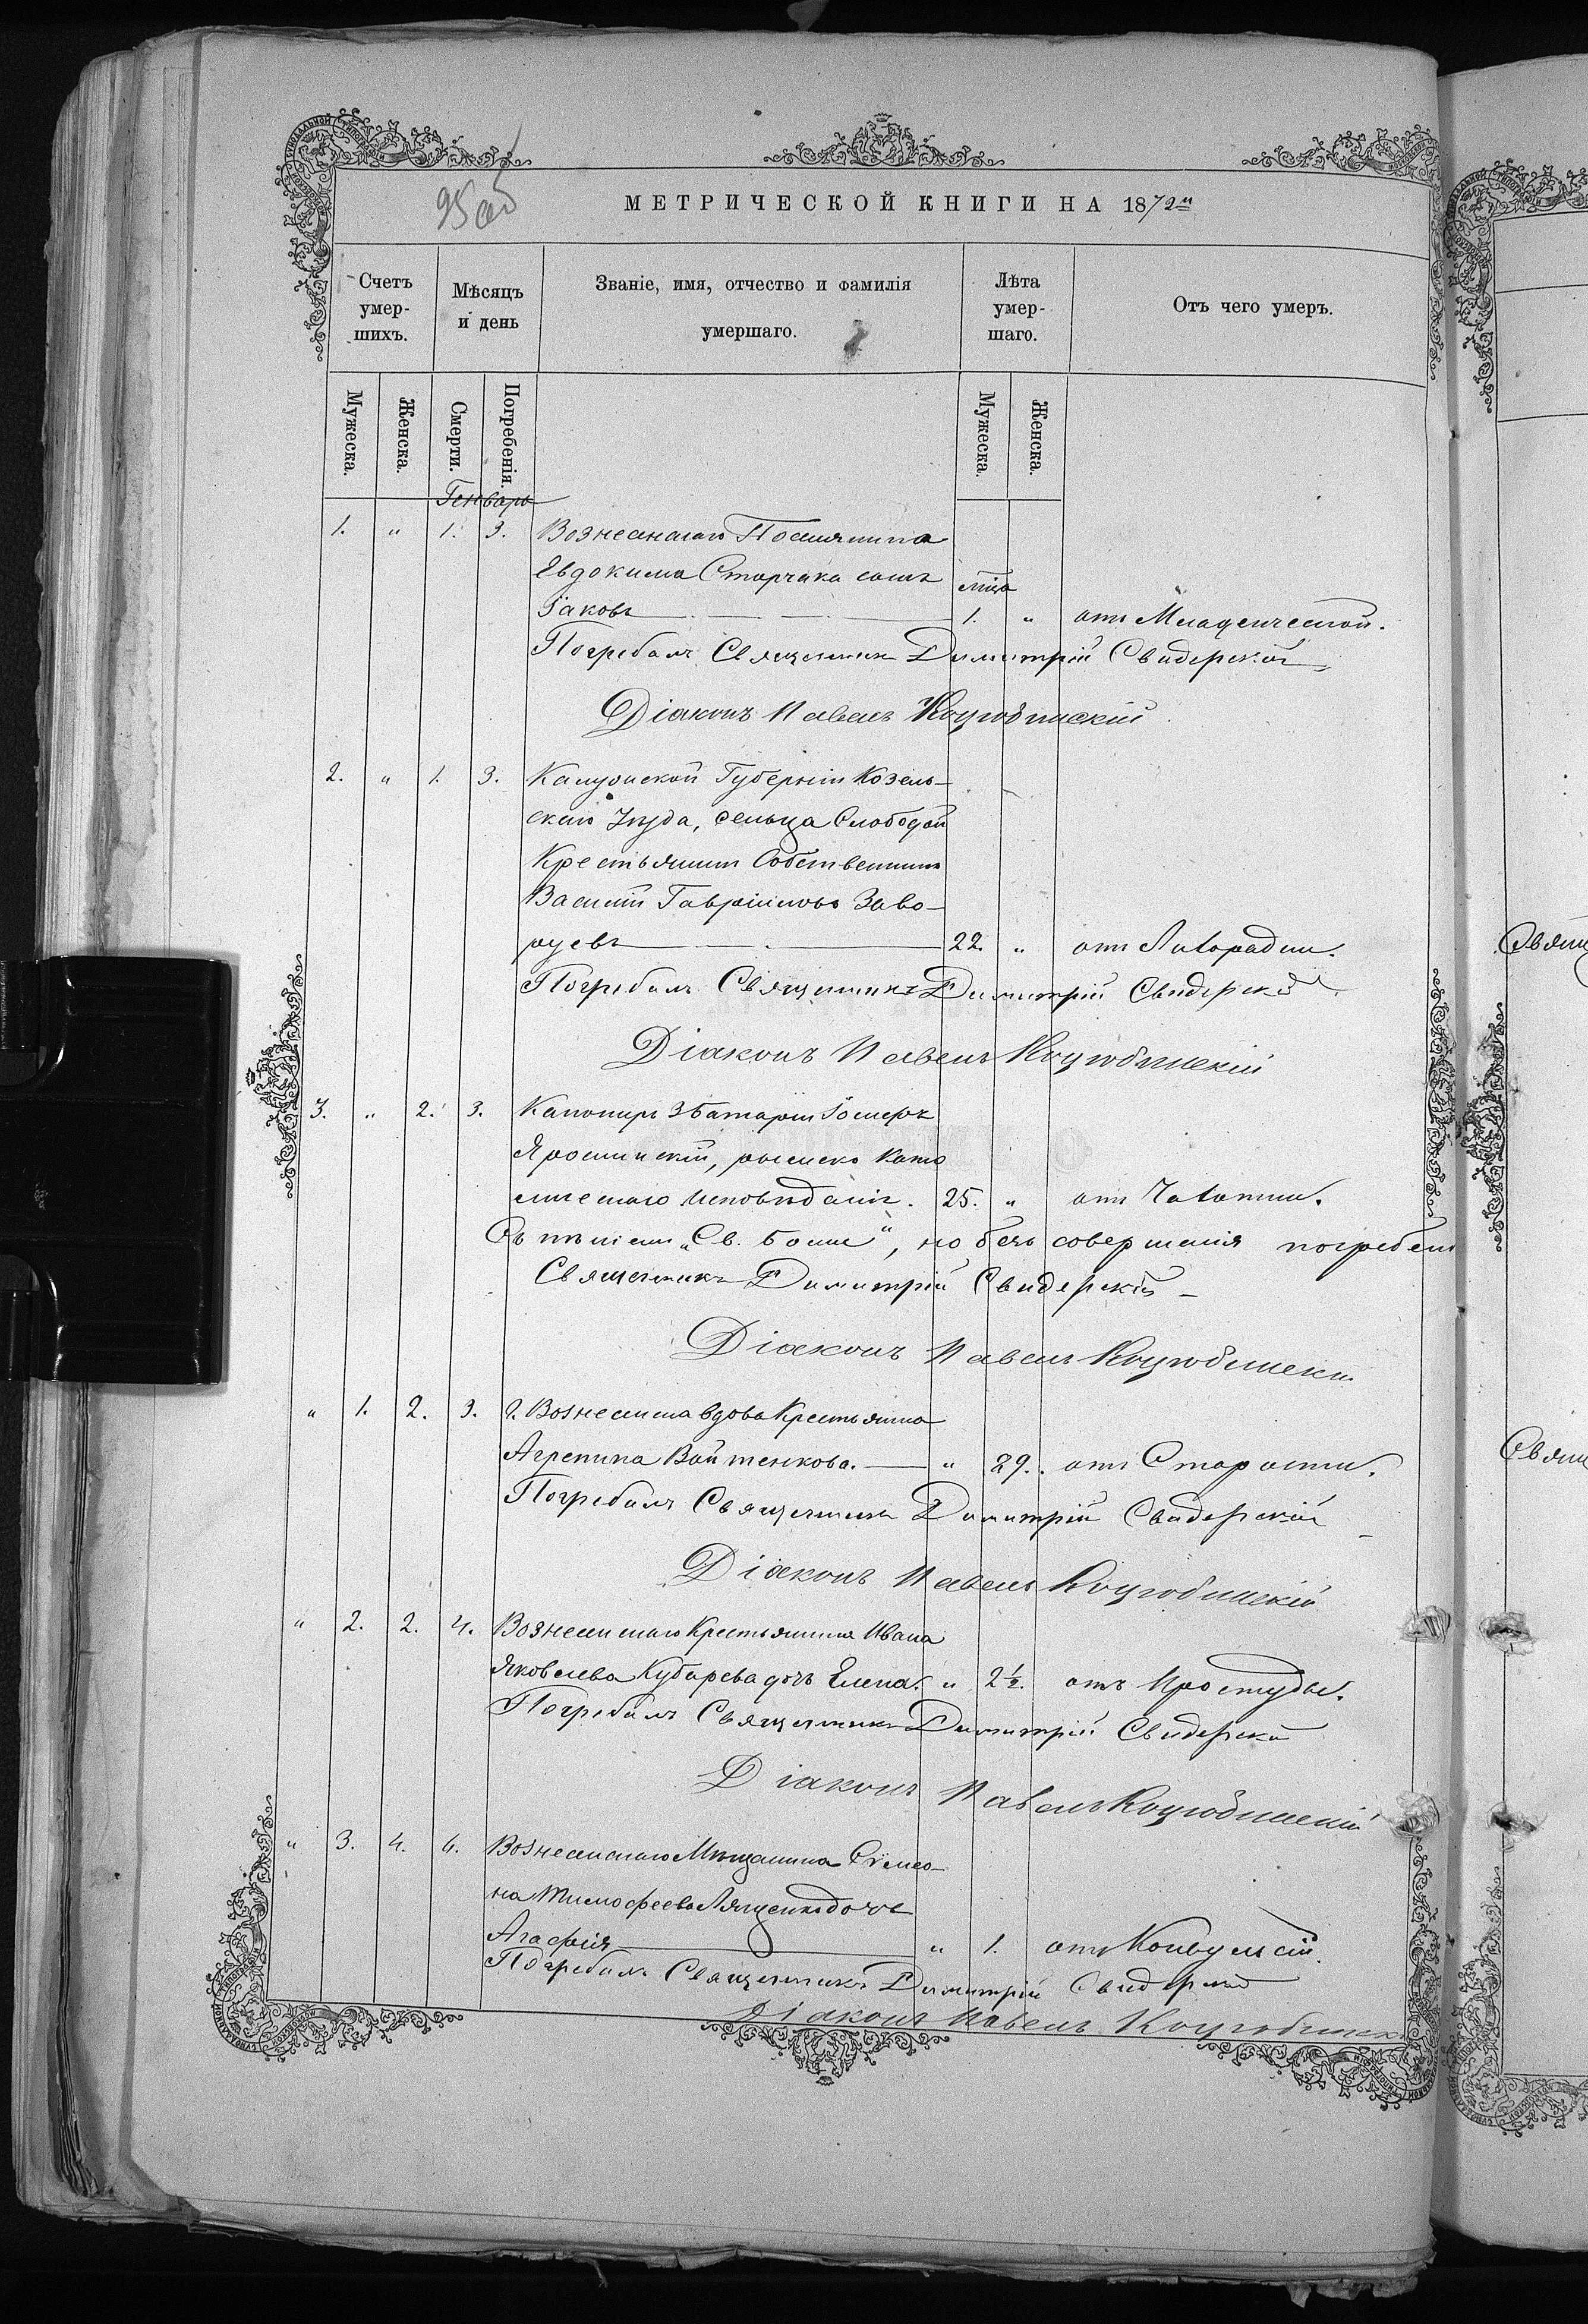 95 об
МЕТРИЧЕСКОЙ КНИГИ НА 1872й
Счетъ умер- шихъ.
Мѣсяцъ и день
Званіе, имя, отчество и фамилія умершаго.
Лѣта умер- шаго.
Отъ чего умеръ.
Мужеска. Женска. Смерти. Погребенія. Мужеска. Женска.
Генварь
1. " 1. 3. Вознесенскаго Поселянина
Евдокима Старчака сынъ мца
Іаковъ 1. " отъ Младенческой.
Погребалъ Священникъ Димитрій Свидерскій
Діаконъ Павелъ Коцюбинскій
2. " 1. 3. Калужской Губерніи Козель-
скаго Уѣзда, сельца Слободы
Крестьянинъ Собственникъ
Василій Гавріиловъ Заво-
руевъ 22. " отъ Лихорадки.
Погребалъ Священникъ Димитрій Свидерскій
Діаконъ Павелъ Коцюбинскій
3. " 2. 3. Канониръ 3 батареи
римско Като
лическаго исповѣданія. 25. " отъ Чахотки.
Съ пѣніемъ „Св. Боже", но безъ совершенія погребенія
Священникъ Димитрій Свидерскій
Діаконъ Павелъ Коцюбински
" 1. 2. 3. г. Вознесенска вдова Крестьянка
Агрепина Войтенкова. " 29. отъ Старости.
Погребалъ Священникъ Димитрій Свидерскій
Діаконъ Павелъ Коцюбинскій
" 2. 2. 4. Вознесенскаго Крестьянина Ивана
Яковлева Кубарева дочь Елена. " 2½. отъ Простуды.
Погребалъ Священникъ Димитрій Свидерскій
Діаконъ Павелъ Коцюбинскій
" 3. 4. 6. Вознесенскаго Мѣщанина Сѵмео-
на Тимофеева Лященко дочь
Агафія " 1. отъ Конвульсій.
Погребалъ Священникъ Димитрій Свидерскій
Діаконъ Павелъ Коцюбинск